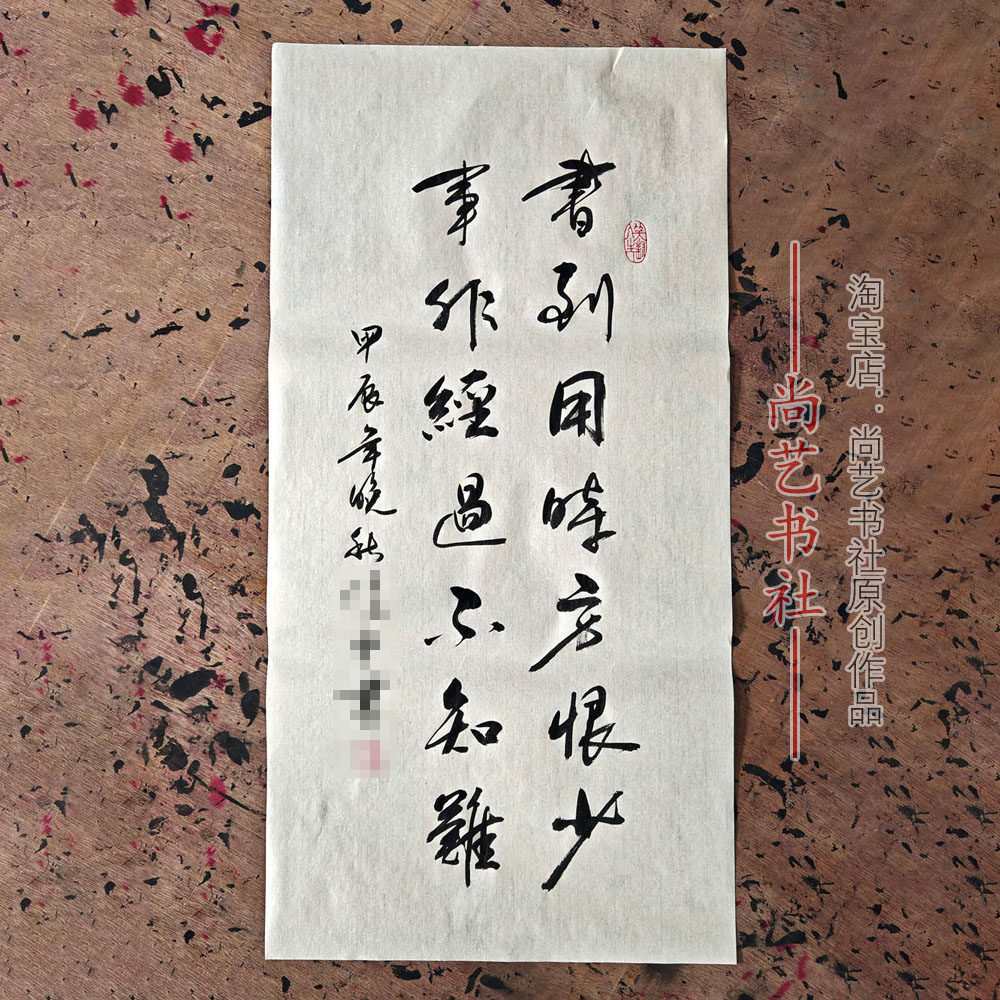 書到用時方恨少
事非經過不知難
甲辰年晚秋
尚艺书社
淘宝店：尚艺书社原创作品